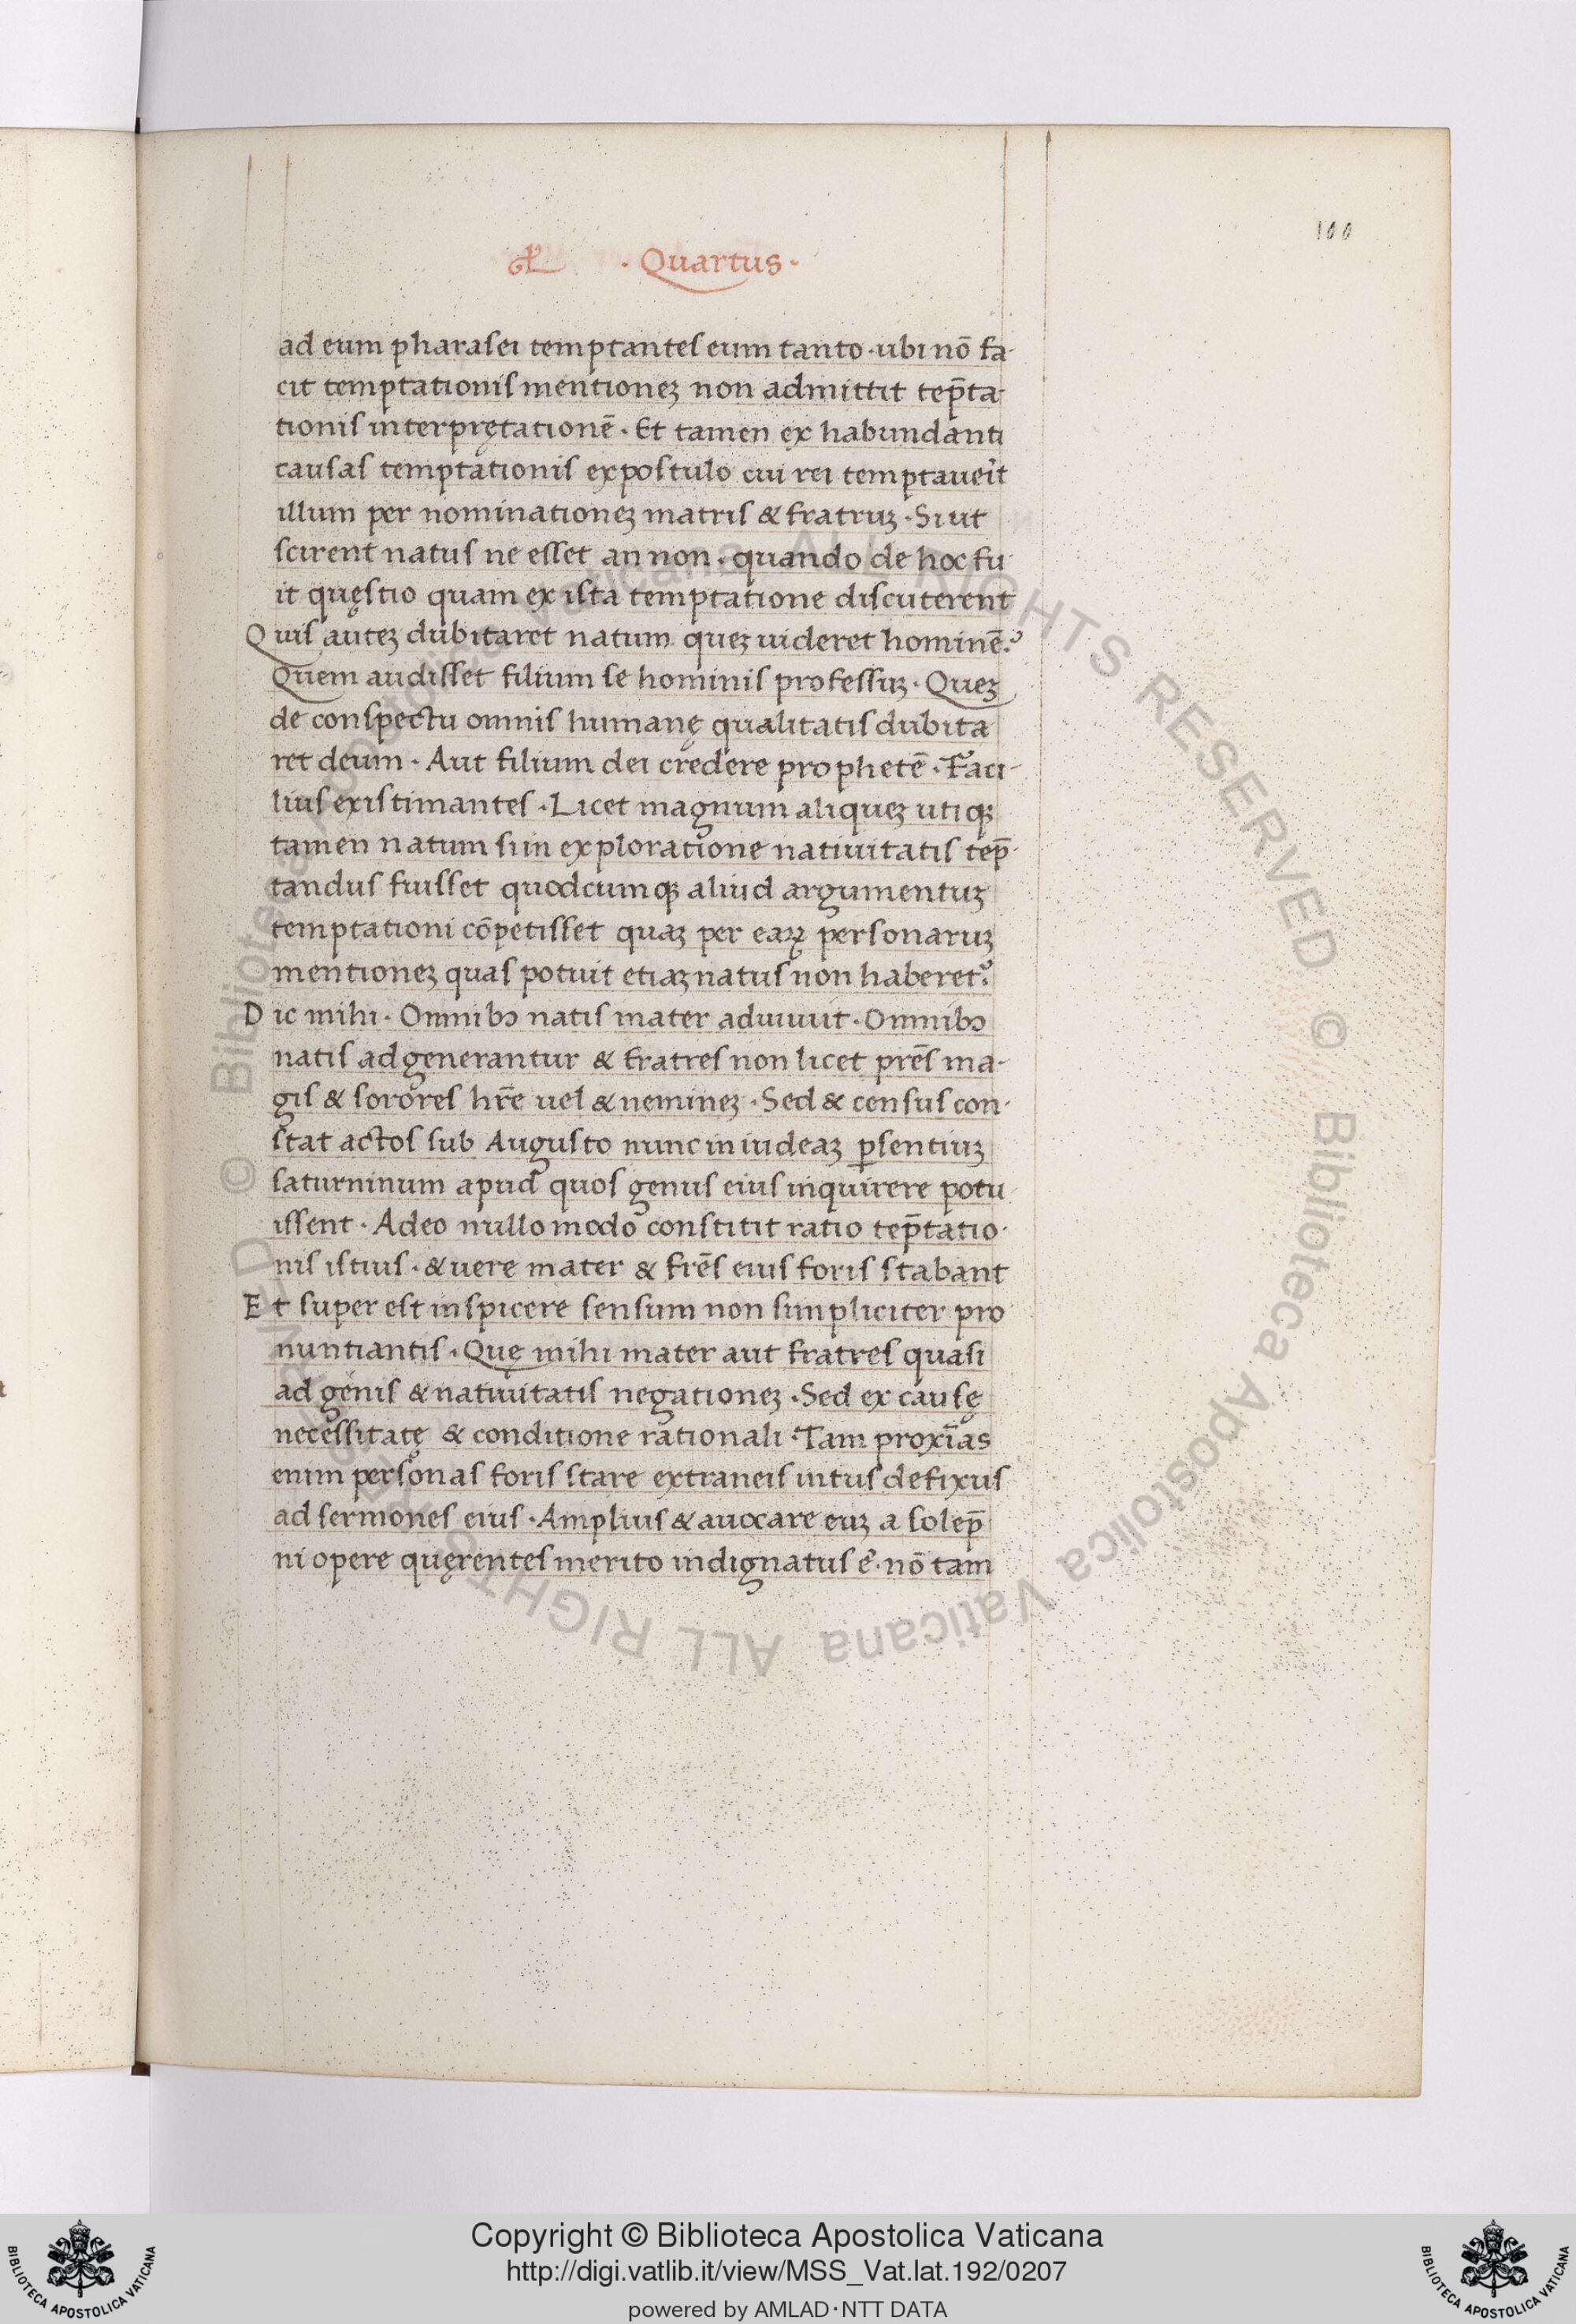 100
· Quartus ·
ad eum pharasei temptantes eum tanto · ubi nō fa-
cit temptationis mentioneꝫ non admittit tep̄ta-
tionis interpretationē · Et tamen ex habundanti
causas temptationis expostulo cui rei temptauerit
illum per nominationeꝫ matris & fratruꝫ · Si ut
scirent natus ne esset an non · quando de hoc fu-
it quęstio quam ex ista temptatione discuterent
Quis auteꝫ dubitaret natum queꝫ uideret hominē?
Quem audisset filium se hominis professuꝫ · Queꝫ
de conspectu omnis humanę qualitatis dubita
ret deum · Aut filium dei credere prophetē · Faci-
lius existimantes · Licet magnum aliqueꝫ utiqꝫ
tamen natum si in exploratione natiuitatis tep̄-
tandus fuisset quodcumqꝫ aliud argumentuꝫ
temptationi cōpetisset quaꝫ per eaꝝ personaruꝫ
mentioneꝫ quas potuit etiaꝫ natus non haberet?
Dic mihi · Omnibꝰ natis mater aduiuit · Omnibꝰ
natis adgenerantur & fratres non licet prēs ma-
gis & sorores hr̄e uel & nemineꝫ · Sed & census con-
stat actos sub Augusto nunc in iudeaꝫ ꝑsentiuꝫ
saturninum apud quos genus eius inquirere potu
issent · Adeo nullo modo constitit ratio tep̄tatio-
nis istius · & uere mater & frēs eius foris stabant
Et super est inspicere sensum non simpliciter pro
nuntiantis · Quę mihi mater aut fratres quasi
ad genis & natiuitatis negationeꝫ · Sed ex causę
necessitatę & conditione rationali · Tam proxīas
enim personas foris stare extraneis intus defixus
ad sermones eius · Amplius & auocare euꝫ a solep̄
ni opere quęrentes merito indignatus ē · nō tam
© Biblioteca Apostolica Vaticana ALL RIGHTS RESERVED © Biblioteca Apostolica Vaticana ALL RIGHTS RESERVED
Copyright © Biblioteca Apostolica Vaticana
http://digi.vatlib.it/view/MSS_Vat.lat.192/0207
powered by AMLAD·NTT DATA
BIBLIOTECA APOSTOLICA VATICANA
BIBLIOTECA APOSTOLICA VATICANA